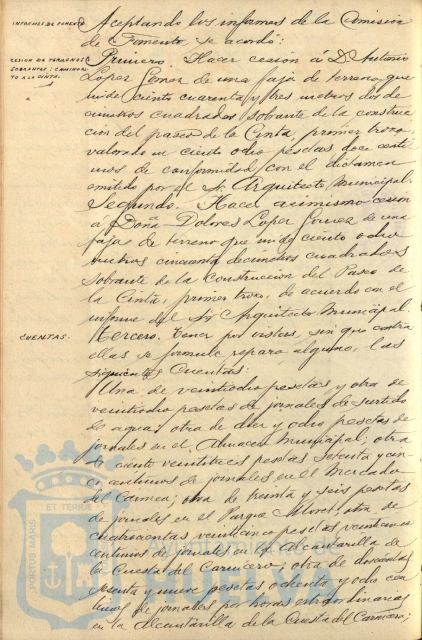 INFORMES DE FOMENTO
Aceptando los informes de la Comisión
de Fomento se acordó:
CESION DE TERRENOS
SOBRANTES: CAMINO
TO A LA CINTA.
Primero. Hacer cesion á D. Antonio
Lopez Gomez de una faja de terreno que
mide ciento cuarenta y tres metros dos de
cimetros cuadrados sobrante de la construc
ción del paseo de la Cinta, primer trozo,
valorado en ciento ocho pesetas doce centi
mos de conformidad con el dictamen
emitido por el Sr. Arquitecto Municipal.
Segundo. Hacer asimismo cesion
á Doña Dolores Lopez Gomez de una
faja de terreno que mide ciento ocho
metros cincuenta decimetros cuadrados
sobrante de la construccion del Paseo de
la Cinta, primer trozo, de acuerdo con el
informe del Sr. Arquitecto Municipal.
CUENTAS.
Tercero. Tener por vistas, sin que contra
ellas se formule reparo alguno, las
siguientes Cuentas:
Una de veintiocho pesetas y otra de
veintiocho pesetas de jornales de surtido
de aguas; otra de diez y ocho pesetas de
jornales en el Almacen Municipal; otra
de ciento veintitres pesetas setenta y cin
co centimos de jornales en el Mercado
del Carmen; otra de treinta y seis pesetas
de jornales en el Parque Moret; otra de
cuatrocientas veinticinco pesetas veinticinco
centimos de jornales en la alcantarilla de
la Cuesta del Carnicero; otra de doscientas
sesenta y nueve pesetas ochenta y ocho cen
timos de jornales por horas extraordinarias
en la alcantarilla de la Cuesta del Carnicero;
PORTUS MARIS
ET TERRÆ